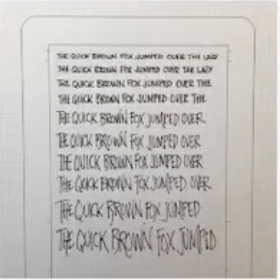 THE QUICK BROWN FOX JUMPED OVER THE LAZY
THE QUICK BROWN FOX JUMPED OVER THE LAZY
THE QUICK BROWN FOX JUMPED OVER THE
THE QUICK BROWN FOX JUMPED OVER THE
THE QUICK BROWN FOX JUMPED OVER
THE QUICK BROWN FOX JUMPED OVER
THE QUICK BROWN FOX JUMPED OVER
THE QUICK BROWN FOX JUMPED OVER
THE QUICK BROWN FOX JUMPED
THE QUICK BROWN FOX JUMPED